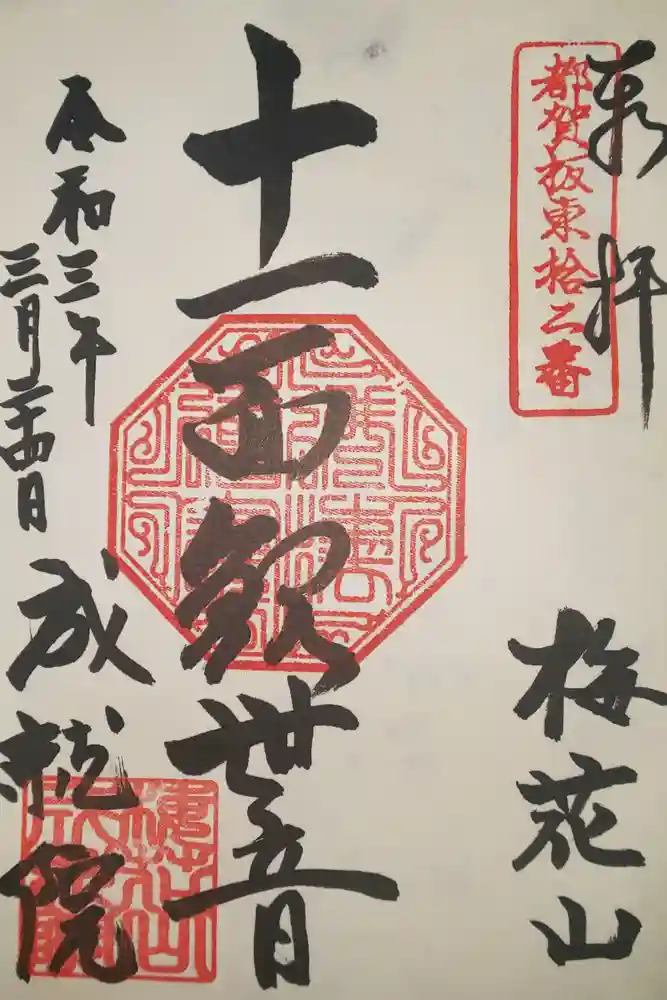 奉拝
都賀坂東拾二番
梅花山
十一面観世音
令和三年
三月二十四日
成就院